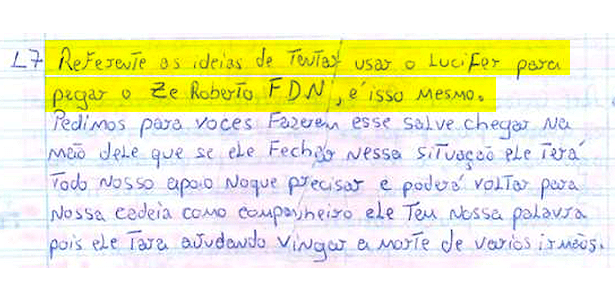 L7 Referente as ideias de Tentar usar o Lucifer para
pegar o Ze Roberto FDN, é isso mesmo.
Pedimos para voces Fazerem esse salve chegar Na
mão dele que se ele Fechar Nessa situação ele Terá
Todo Nosso apoio Noque precisar e poderá voltar para
Nossa cadeia como companheiro ele Tem Nossa palavra
pois ele Tara ajudando Vingar a morte de varios irmãos.